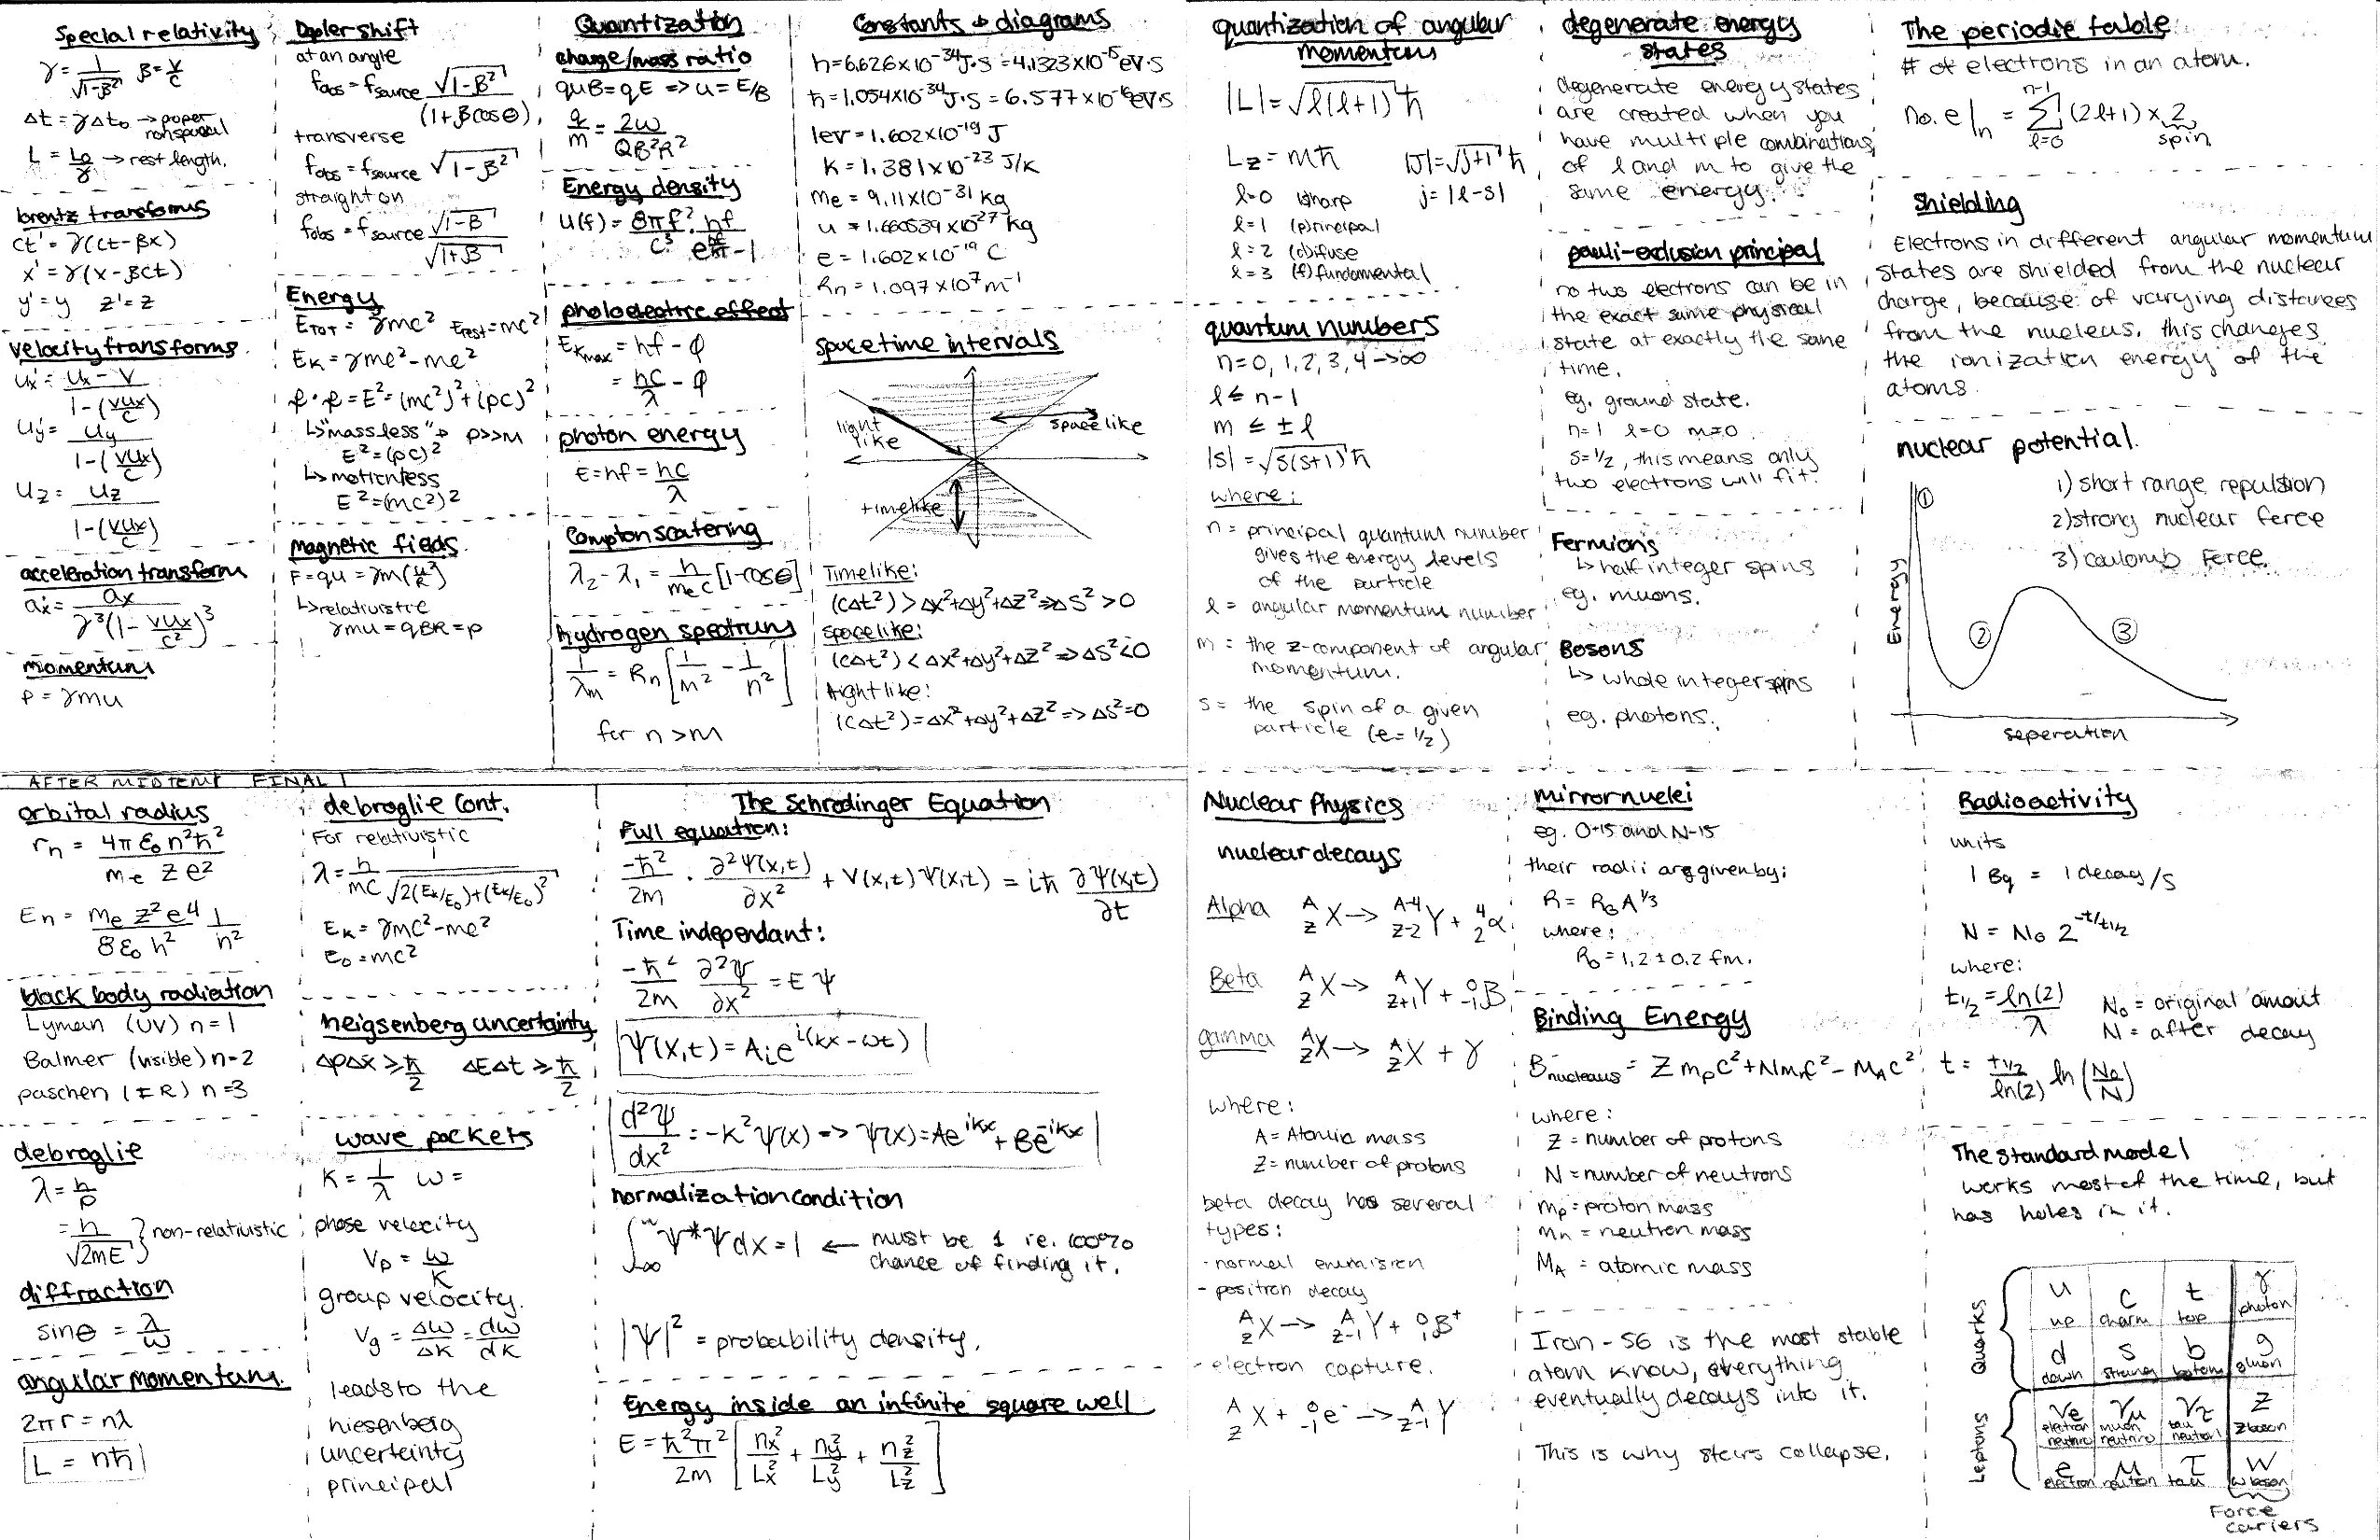 Special relativity
γ = 1/√(1-β²) β = v/c
Δt = γΔt₀ → poper
nonspacial
L = L₀/γ → rest length.
lorentz transforms
ct' = γ(ct-βx)
x' = γ(x-βct)
y' = y z' = z
velocity transforms.
Ux' = (Ux - v)/(1-(vUx/c))
Uy' = Uy/(1-(vUx/c))
Uz = Uz/(1-(vUx/c))
acceleration transform
ax' = ax/γ³(1 - vUx/c²)³
momentum
P = γmu
Dopler shift
at an angle
fobs = fsource √(1-β²)/(1+βcosθ)
transverse
fobs = fsource √(1-β²)
straight on
fobs = fsource √(1-β)/√(1+β)
Energy
ETOT = γmc² Erest = mc²
EK = γmc² - mc²
P · P = E² = (mc²)² + (pc)²
↳ "massless" → p>>m
E² = (pc)²
↳ motionless
E² = (mc²)²
magnetic fields.
F = qu = γm(u²/R)
↳ relativistic
γmu = qBR = p
Quantization
charge/mass ratio
quB = qE => u = E/B
q/m = 2w/QB²R²
Energy density
u(f) = 8πf²/c³ · hf/(e^(hf/kT) - 1)
photoelectric effect
EKmax = hf - φ
= hc/λ - φ
photon energy
E = hf = hc/λ
Compton scatering
λ₂ - λ₁ = h/mec [1-cosθ]
hydrogen spectrum
1/λm = Rn [1/m² - 1/n²]
for n > m
Constants & diagrams
h = 6.626×10⁻³⁴ J·s = 4.1323×10⁻¹⁵ eV·s
ħ = 1.054×10⁻³⁴ J·s = 6.577×10⁻¹⁶ eV·s
1ev = 1.602×10⁻¹⁹ J
K = 1.381×10⁻²³ J/K
me = 9.11×10⁻³¹ kg
u = 1.660539×10⁻²⁷ kg
e = 1.602×10⁻¹⁹ C
Rn = 1.097×10⁷ m⁻¹
spacetime intervals
light
like
spacelike
timelike
Timelike:
(cΔt²) > Δx²+Δy²+Δz² => ΔS² > 0
spacelike:
(cΔt²) < Δx²+Δy²+Δz² => ΔS² < 0
lightlike:
(cΔt²) = Δx²+Δy²+Δz² => ΔS² = 0
quantization of angular
momentum
|L| = √(l(l+1)) ħ
Lz = mħ |J| = √(j+1) ħ
l=0 (s)harp j = |l-s|
l=1 (p)rincipal
l=2 (d)ifuse
l=3 (f)fundamental
quantum numbers
n = 0, 1, 2, 3, 4 → ∞
l ≤ n-1
m ≤ ±l
|S| = √(s(s+1)) ħ
where:
n = principal quantum number
gives the energy levels
of the particle
l = angular momentum number
m = the z-component of angular
momentum.
s = the spin of a given
particle (e = 1/2)
degenerate energy
states
degenerate energy states
are created when you
have multiple combinations
of l and m to give the
same energy.
pauli-exclusion principal
no two electrons can be in
the exact same physical
state at exactly the same
time.
eg. ground state.
n=1 l=0 m=0
s=1/2, this means only
two electrons will fit.
Fermions
↳ half integer spins
eg. muons.
Bosons
↳ whole integer spins
eg. photons.
The periodic table
# of electrons in an atom.
no. e|n = Σ(l=0 to n-1) (2l+1) × 2
spin
Shielding
Electrons in different angular momentum
states are shielded from the nuclear
charge, because of varying distances
from the nucleus. this changes
the ionization energy of the
atoms.
nuclear potential.
1) short range repulsion
2) strong nuclear force
3) coulomb force.
Energy
① ② ③
seperation
AFTER MIDTEM FINAL
orbital radius
rn = 4πε₀n²ħ²/me Z e²
En = me Z² e⁴/8ε₀h² 1/n²
black body radiation
Lyman (UV) n=1
Balmer (visible) n=2
paschen (IR) n=3
debroglie
λ = h/p
= h/√(2mE) } non-relativistic
diffraction
sinθ = λ/w
angular momentum.
2πr = nλ
L = nħ
debroglie cont.
For relativistic
λ = h/mc 1/√(2(Ek/E₀)+(Ek/E₀)²)
Ek = γmc² - mc²
E₀ = mc²
heigsenberg uncertainty
ΔpΔx ≥ ħ/2 ΔEΔt ≥ ħ/2
wave packets
K = 1/λ ω =
phase velocity
Vp = ω/K
group velocity.
Vg = Δω/ΔK = dω/dK
leads to the
hiesenberg
uncertainty
principal
The Schrodinger Equation
Full equation:
-ħ²/2m · ∂²Ψ(x,t)/∂x² + V(x,t)Ψ(x,t) = iħ ∂Ψ(x,t)/∂t
Time independant:
-ħ²/2m ∂²Ψ/∂x² = EΨ
Ψ(x,t) = Aᵢe^(i(kx-ωt))
d²Ψ/dx² = -K²Ψ(x) => Ψ(x) = Ae^(iKx) + Be^(-iKx)
normalization condition
∫-∞^∞ Ψ*Ψ dx = 1 ← must be 1 ie. 100%
chance of finding it.
|Ψ|² = probability density.
Energy inside an infinite square well
E = ħ²π²/2m [nx²/Lx² + ny²/Ly² + nz²/Lz²]
Nuclear Physics
nuclear decays
Alpha A/Z X → A-4/Z-2 Y + 4/2 α
Beta A/Z X → A/Z+1 Y + 0/-1 β
gamma A/Z X → A/Z X + γ
where:
A = Atomic mass
Z = number of protons
beta decay has several
types:
- normal enmision
- positron decay
A/Z X → A/Z-1 Y + 0/1 β⁺
- electron capture.
A/Z X + 0/-1 e⁻ → A/Z-1 Y
mirror nuclei
eg. O-15 and N-15
their radii are given by:
R = R₀A^(1/3)
where:
R₀ = 1.2 ± 0.2 fm.
Binding Energy
Bnucleus = Z mpc² + Nmnc² - MAc²
where:
Z = number of protons
N = number of neutrons
mp = proton mass
mn = neutron mass
MA = atomic mass
Iron - 56 is the most stable
atom know, everything
eventually decays into it.
This is why stars collapse.
Radioactivity
units
1 Bq = 1 decay/s
N = N₀ 2^(-t/t1/2)
where:
t1/2 = ln(2)/λ N₀ = original amout
N = after decay
t = t1/2/ln(2) ln(N₀/N)
The standard model
works most of the time, but
has holes in it.
Quarks
u up
c charm
t top
γ photon
d down
s strange
b bottom
g gluon
Leptons
νe electron neutrino
νμ muon neutrino
ντ tau neutrino
Z Z boson
e electron
μ
τ tau
W W boson
Force
cariers